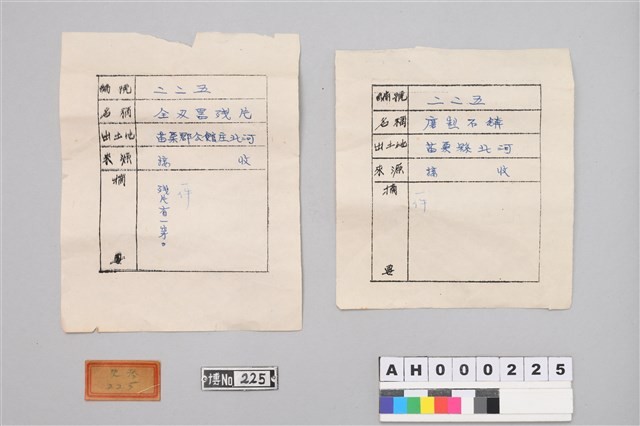 編號 二二五
名稱 全叉器淺片
出土地 苗栗郡公館庄北河
來源 接收
摘要 一件
淺片有一等。
編號 二二五
名稱 磨製石鏃
出土地 苗栗縣北河
來源 接收
摘要 一件
225
博No 225
AH000225